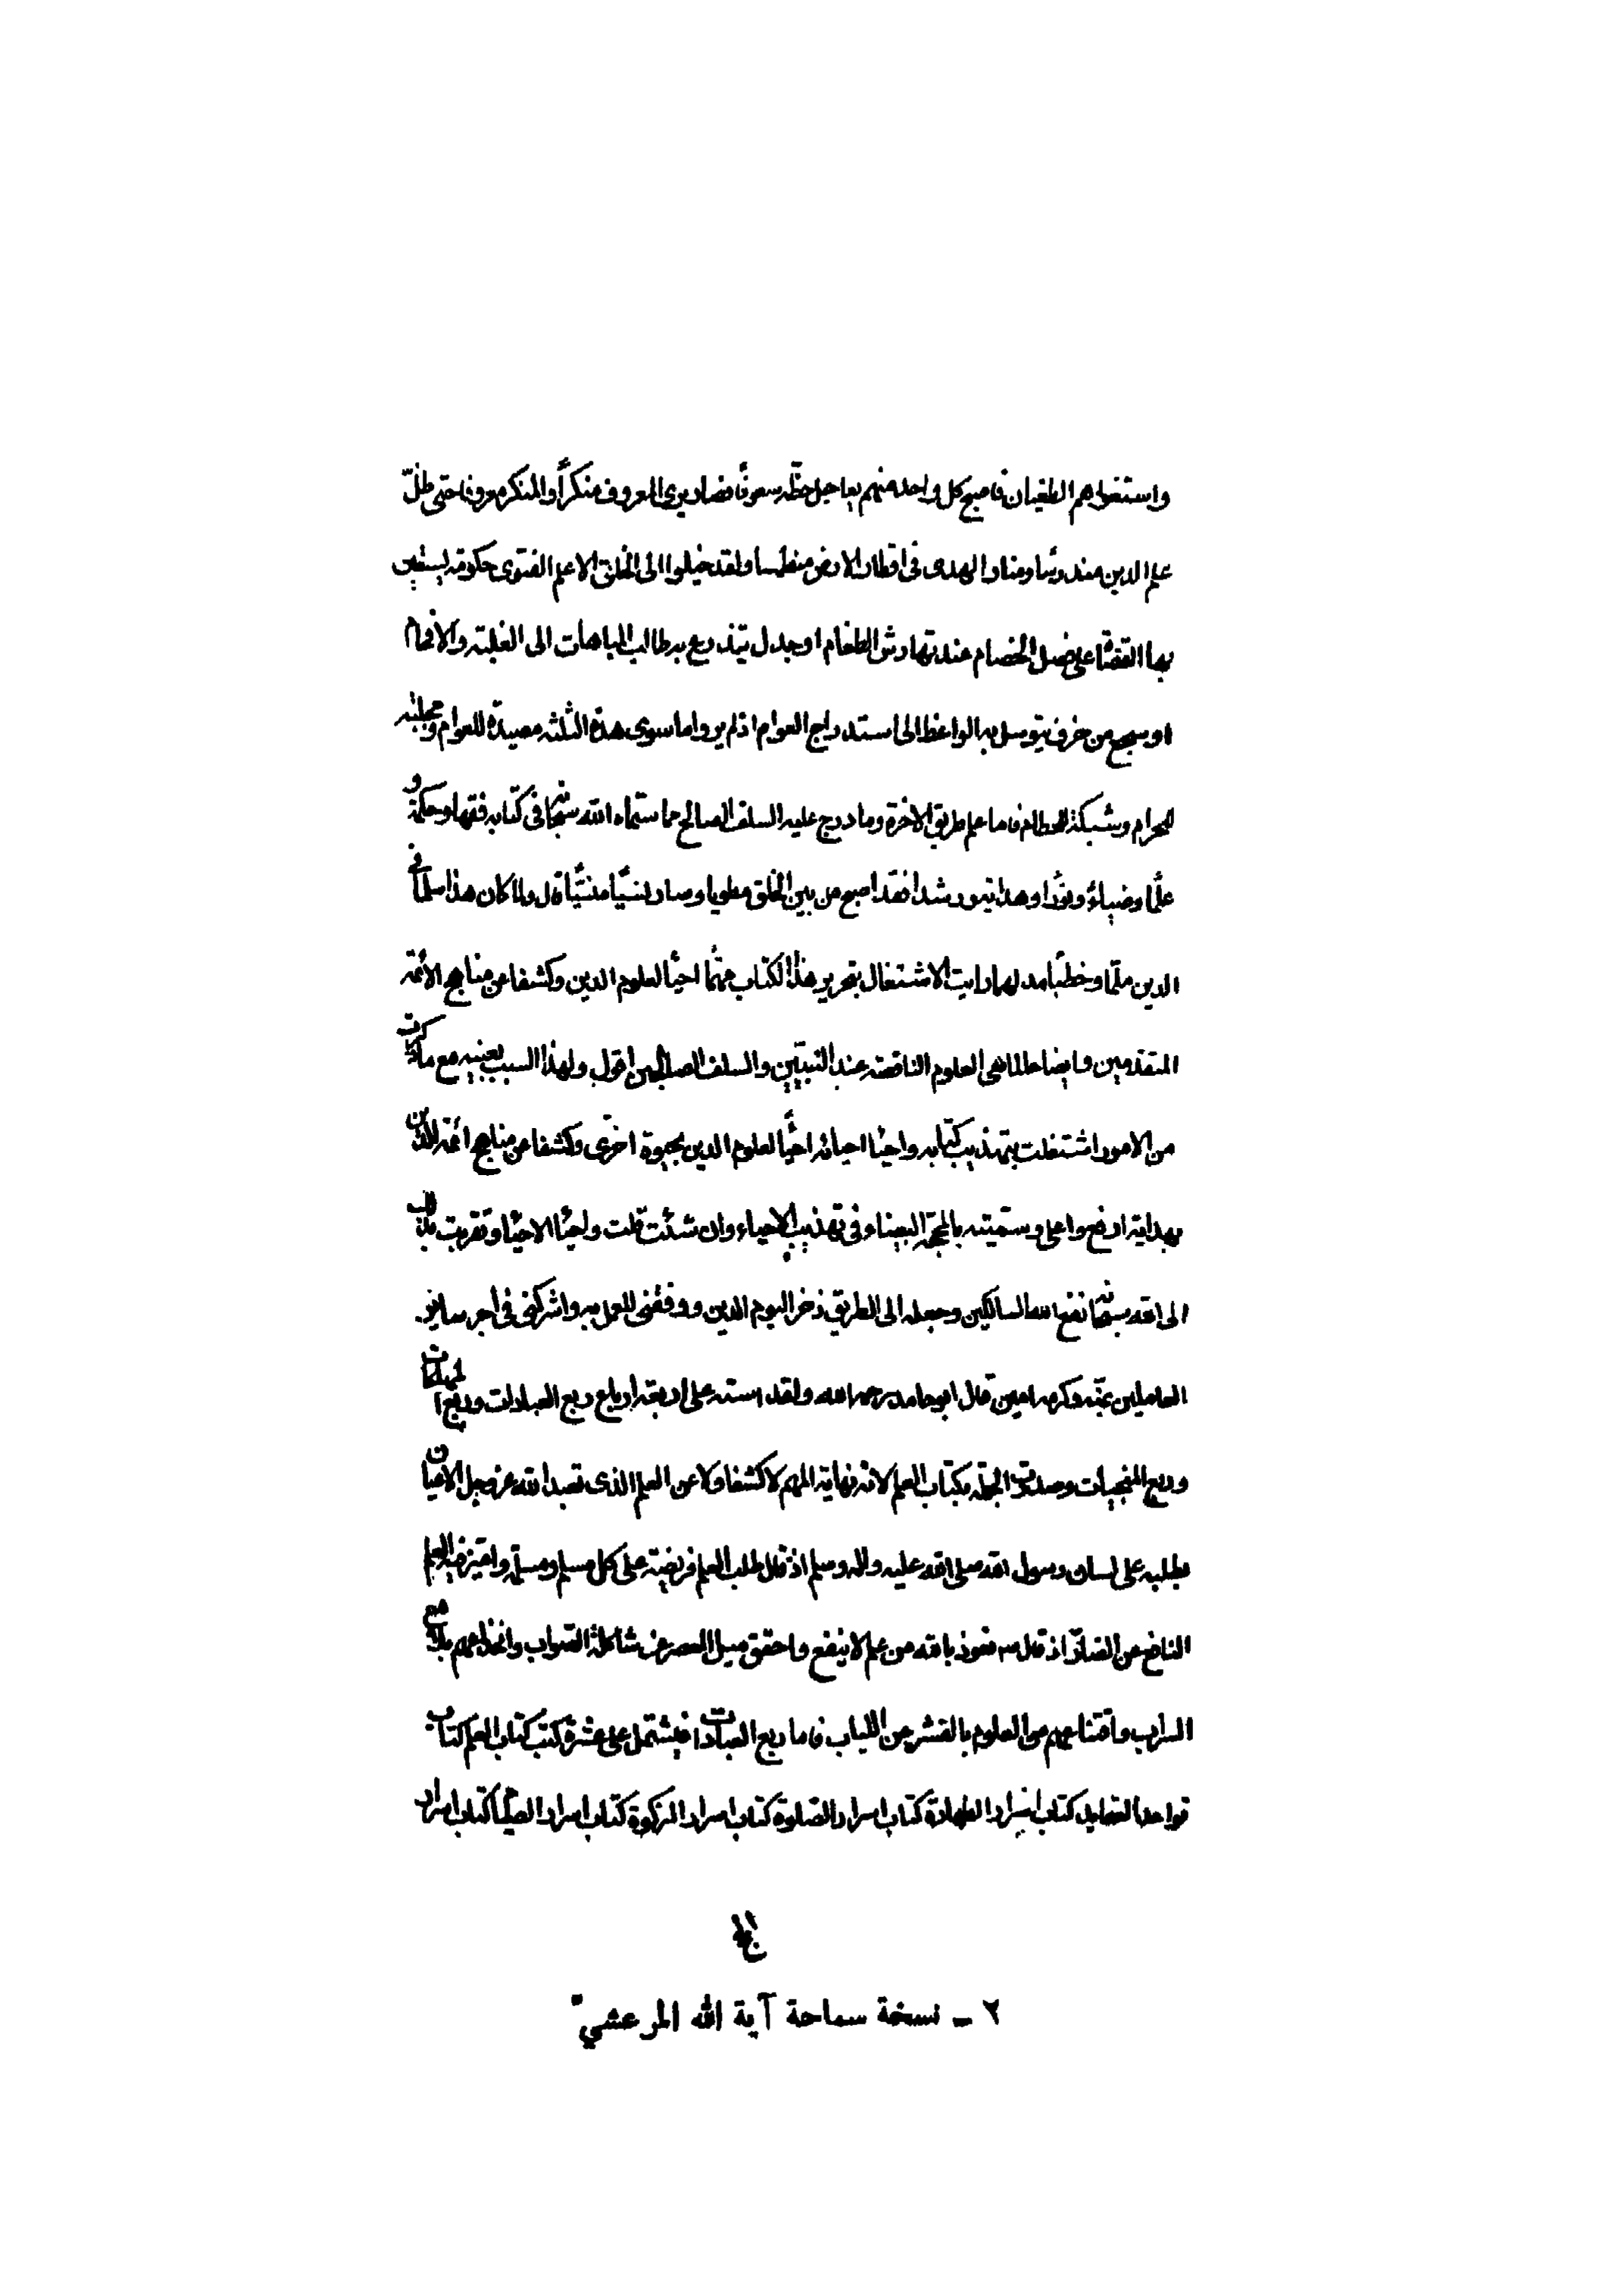 واستغواهم الطغيان فاصبح كل واحد منهم بعاجل حظّه سعوفًا فصار يرى المعروف منكرًا والمنكر معروفا حتى ظلّ
علم الدين مندرسًا ومنار الهدى فى اقطار الارض منطمسا ولقد خيلوا الى الخلق الا علم الفتوى حكومة يستعين
بها القضاة على فصل الخصام عند تهاوش الطغام او جدل يتذرع به طالب المباهات الى الغلبة والافحام
او سجع مزخرف يتوسل به الواعظ الى استدراج العوام اذ لم يروا ما سوى هذه الثلثه مصيدة للعوام ومجلبة
للحرام وشبكة للحطام فاما علم طريق الاخرة وما درج عليه السلف الصالح مما سمّاه الله سبحانه فى كتابه فقها وحكمة و
علمًا وضياءً ونورًا وهداية ورشدا فقد اصبح من بين الخلق مطويا وصار نسيًا منسيًا قال ولما كان هذا ثلما فى
الدين ملمّا وخطبًا مدلهما رايت الاشتغال بتحرير هذا الكتاب مهمّا احياء لعلوم الدين وكشفا عن مناهج الائمة
المتقدمين وايضاحا لما هى العلوم النافعة عند النبيّين والسلف الصالحين اقول ولهذا السبب بعينه مع ما ذكرت
من الامور اشتغلت بتهذيب كتابه واحياء احيائه احياء لعلوم الدين بحيوة اخرى وكشفا عن مناهج ائمة الدين
بهداية ارفع واعلى وسمّيته بالمحجّة البيضاء فى تهذيب الاحياء وان شئت قلت فى احياء الاحياء وتقربت بذلك
الى الله سبحانه نفع الله السالكين وجعله الى الطريق ذخرا ليوم الدين ووفقنى للعمل به واشركنى فى اجر ساير
العاملين بمنّه وكرمه امين قال ابو حامد رحمه الله ولقد اسسته على اربعة ارباع ربع العبادات وربع المهلكات
وربع المنجيات وصدرت الجملة بكتاب العلم لانه نهاية المهم لاكشف اولا عن العلم الذى تعبد الله عز وجل الاعيان
بطلبه على لسان رسول الله صلى الله عليه واله وسلم اذ قال طلب العلم فريضة على كل مسلم ومسلمة واميز فيه العلم
النافع من الضارّ اذ قال نعوذ بالله من علم لا ينفع واحقق ميل العصر عن شاكلة الصواب وانخداعهم بلامع
السراب واقتناعهم من العلوم بالقشر عن اللباب فاما ربع العبادات فيشتمل على عشرة كتب كتاب العلم كتاب
قواعد العقايد كتاب اسرار الطهارة كتاب اسرار الصّلوة كتاب اسرار الزكوة كتاب اسرار الصيام كتاب اسرار
الحج
٢ ــ نسخة سماحة آية الله المرعشيّ